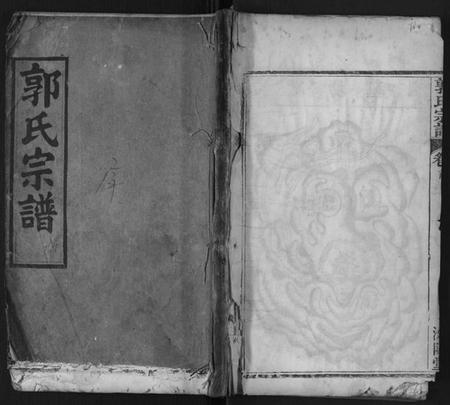 郭氏宗譜
序
郭氏宗譜
卷